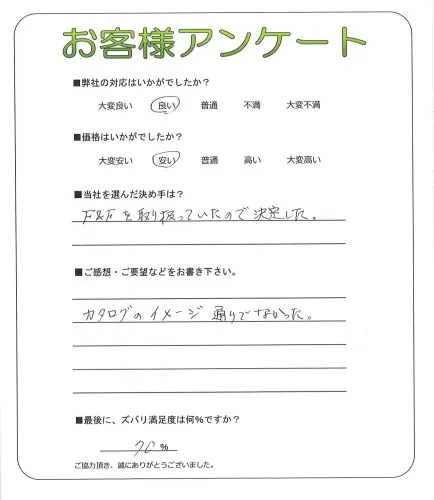 お客様アンケート
■弊社の対応はいかがでしたか？
大変良い 良い 普通 不満 大変不満
■価格はいかがでしたか？
大変安い 安い 普通 高い 大変高い
■当社を選んだ決め手は？
F&Fを取り扱っていたので決定した。
■ご感想・ご要望などをお書き下さい。
カタログのイメージ通りでなかった。
■最後に、ズバリ満足度は何%ですか？
70 %
ご協力頂き、誠にありがとうございました。